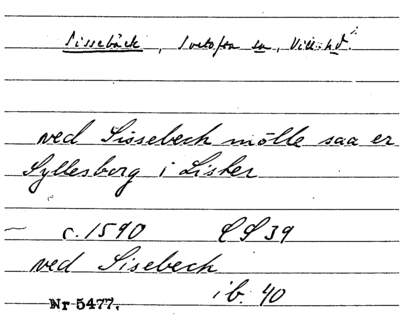 Sissebäck, Ivetofta sn, Vill. hd.
ved Sissebeck mölle saa er
Syllesborg i Lister
— c. 1590 LS 39
ved Sisebeck
ib. 40
Nr 5477.